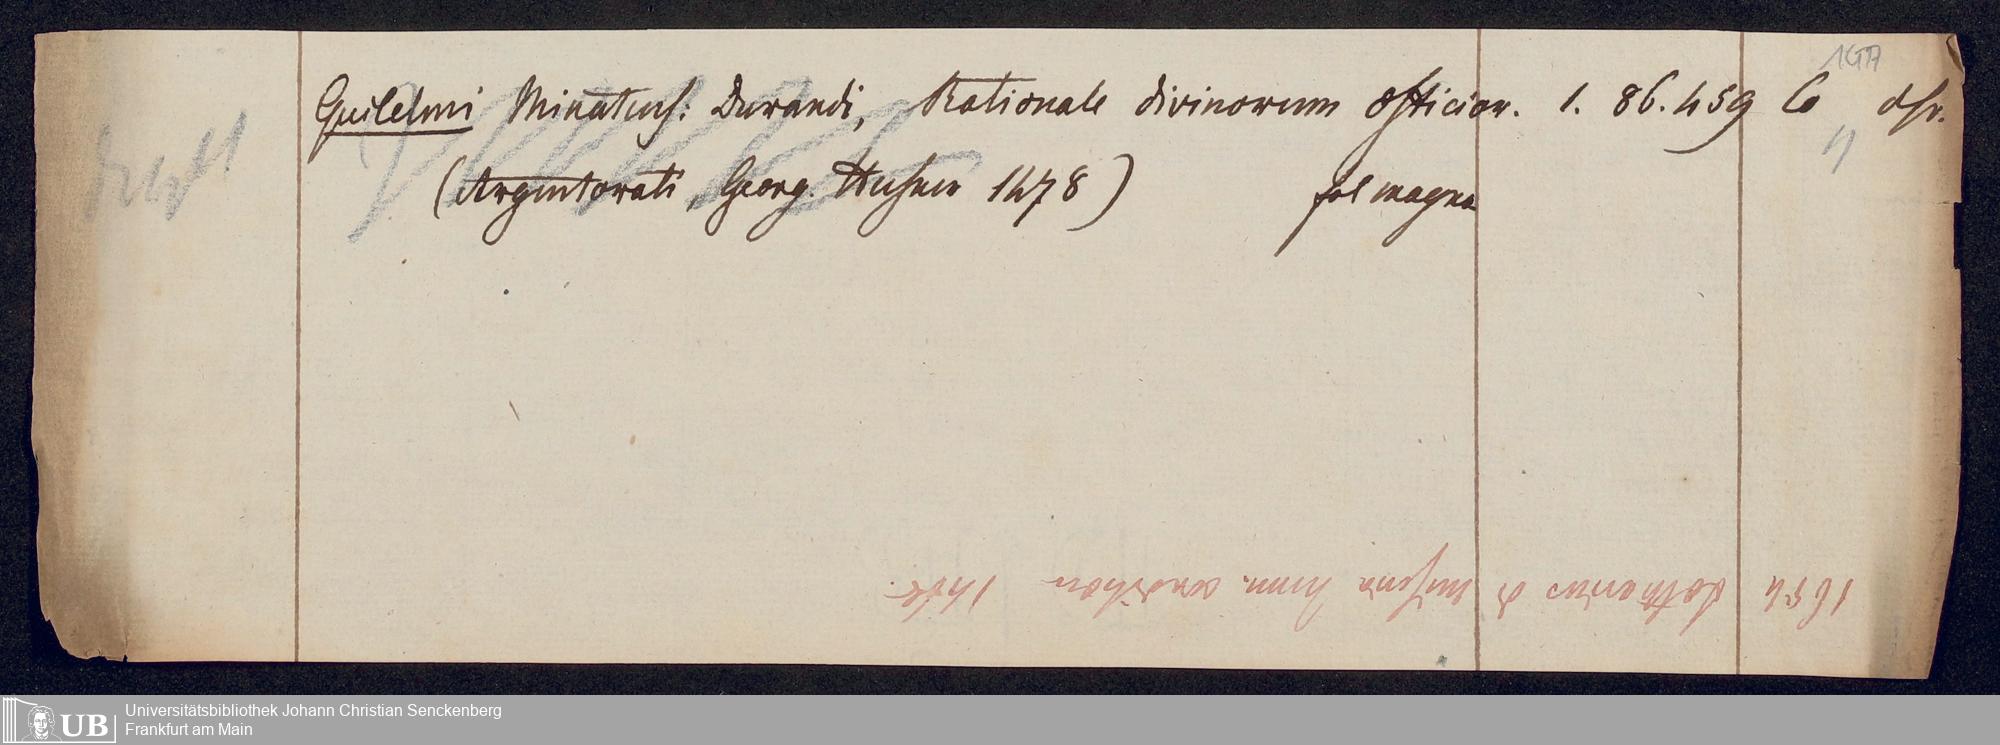 Guilelmi Minatens: Durandi, Rationale divinorum officior. 1. 86.459 Co dpr.
(Argentorati, Georg. Husner 1478) fol magno
1654 Lotharius d miseria hum. condition
UB Universitätsbibliothek Johann Christian Senckenberg
Frankfurt am Main